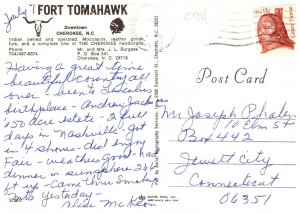 July 9
FORT TOMAHAWK
Downtown
CHEROKEE, N.C.
Indian owned and operated. Moccasins, leather goods,
furs, and a complete line of THE CHEROKEE handicrafts.
Phone Mr. and Mrs. J. L. Burgess
704/497-9374 P. O. Box 541
Cherokee, N. C. 28719
Having a great time
beautiful country all
over - been to Lincolns
birthplace - Andrew Jackson
150 acre estate - 2 full
days in Nashville - got
in 4 shows - did enjoy
Fair - weather good - had
dinner in sunsphere 266
ft up - Came thru Smokies
yesterday -
Post Card
M Joseph Phalen
10 Elm St
Box 442
Jewett City
Connecticut
06351
USA
Crazy Horse